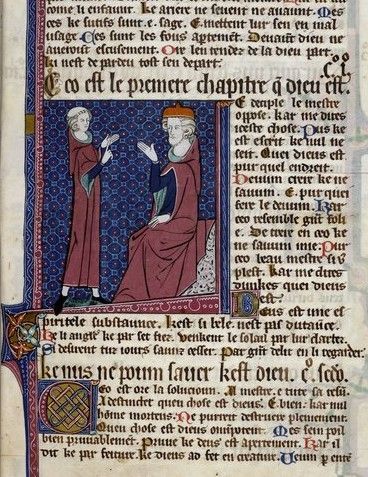 come li enfaunt. Ke apere ne sevent ne avaient. Mes
ces ke sutifs sunt. e. sage. E mettent lur sen en mal
usage. Ces sunt les fous apertement. Devaunt dieu ne
averont
Ore len tendez de la dieu part.
ki nest de par deu tost sen depart.
Eco est le premere chapitre q dieu est.
E deciple le mestre
oppose. kar me dites
ceste chose. Pus ke
est escrit ke nul ne
seit. Quei dieus est
pur quel endreit.
Devum creir ke ne
savum. E. pur quei
fere le devum. kar
ceo resemble grant foli
e. De creire en ceo ke
ne savum mie. Pur
ceo beau mestre si vus
plest. kar me dites
dunkes quei dieus
est.
Deus est une es
piritele substaunce. kest si bele. nest pas dutaunce.
ke li angle ke par set fiez. venkent le solail par lur clartez.
Si desirent tur jours saunz cesser. Par grant delit en li regarder.
ke nus ne poum saver kest dieu. c. secd.
Ceo est ore la solucioun. Al mestre. e tute sa resun
A destinctet quei chose est dieus. E. bien. kar nul
home mortens. Ne purreit destruer pleinement.
Quei chose est dieus omnipotent. Mes sen poil
bien priviablement. Pruve ke deus est apertement. kar il
dit ke par feture. ke dieus ad fet en creature. Veum par ente